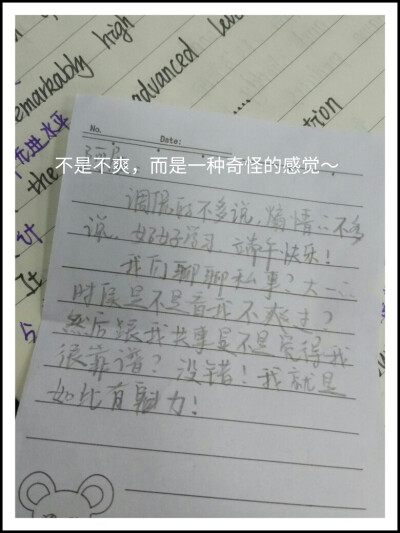 remarkably high
advanced level
先进水平
the
tion
No.
Date:
不是不爽，而是一种奇怪的感觉～
调侃的不多说，煽情的不多
说，好好学习，端午快乐！
我们聊聊私事？大一
时候是不是看我不爽过？
然后跟我共事是不是觉得我
很靠谱？没错！我就是
如此有魅力！